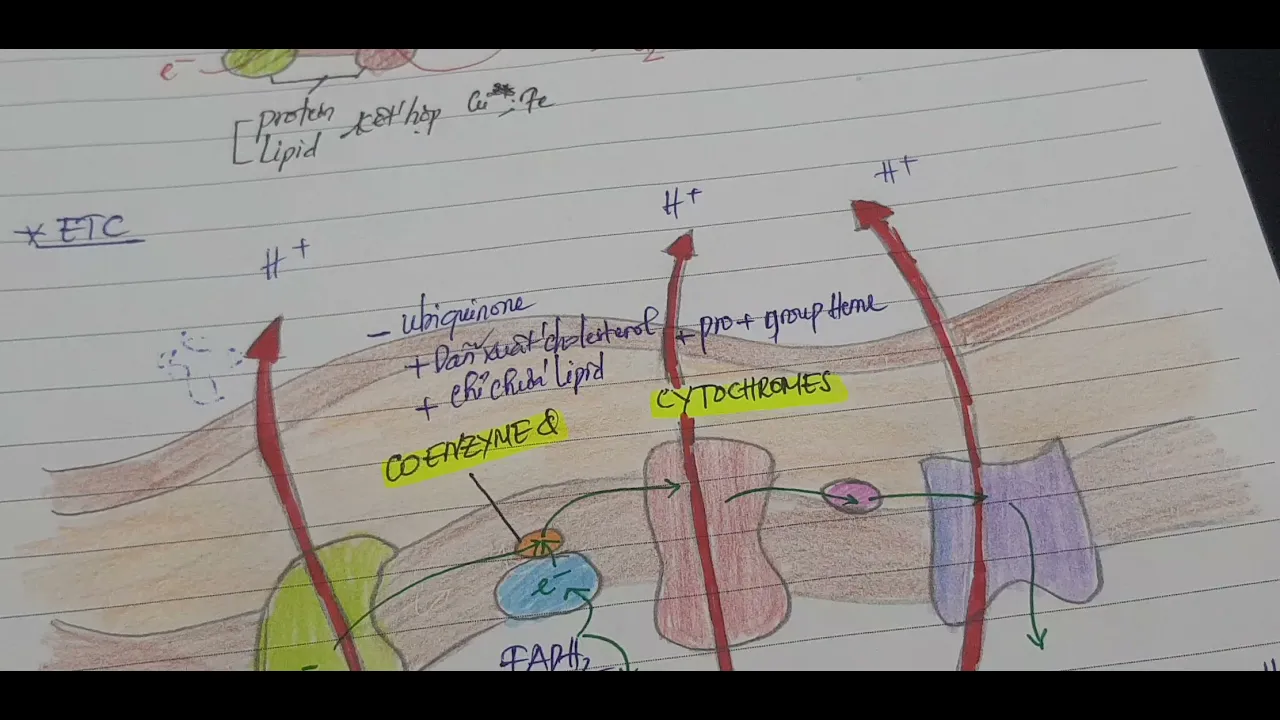 e⁻
protein
lipid kết hợp Cu ; Fe
* ETC
H⁺
H⁺
H⁺
- Ubiquinone
+ Dẫn xuất cholesterol
+ chỉ chứa lipid
+ pro + group Heme
COENZYME Q
CYTOCHROMES
e⁻
FADH₂